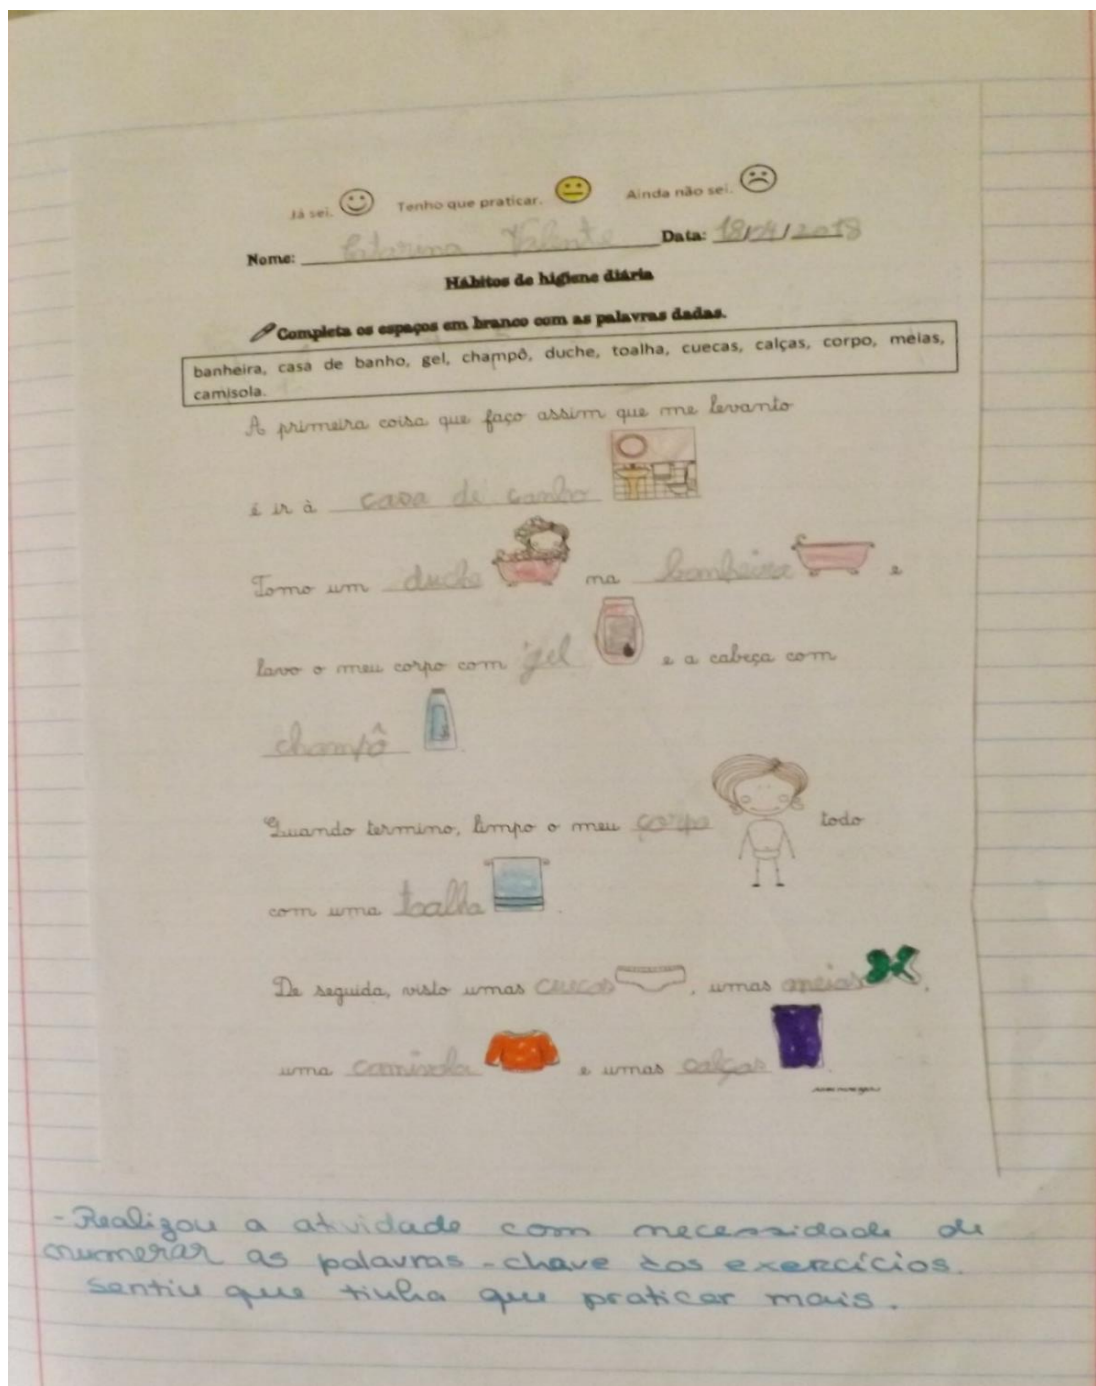 Já sei. Tenho que praticar. Ainda não sei.
Nome: Catarina Valente Data: 18/04/2018
Hábitos de higiene diária
Completa os espaços em branco com as palavras dadas.
banheira, casa de banho, gel, champô, duche, toalha, cuecas, calças, corpo, meias,
camisola.
A primeira coisa que faço assim que me levanto
é ir à casa de banho
Tomo um duche na banheira e
lavo o meu corpo com gel e a cabeça com
champô.
Quando termino, limpo o meu corpo todo
com uma toalha.
De seguida, visto umas cuecas, umas meias,
uma camisola e umas calças.
- Realizou a atividade com necessidade de
numerar as palavras-chave dos exercícios.
Sentiu que tinha que praticar mais.